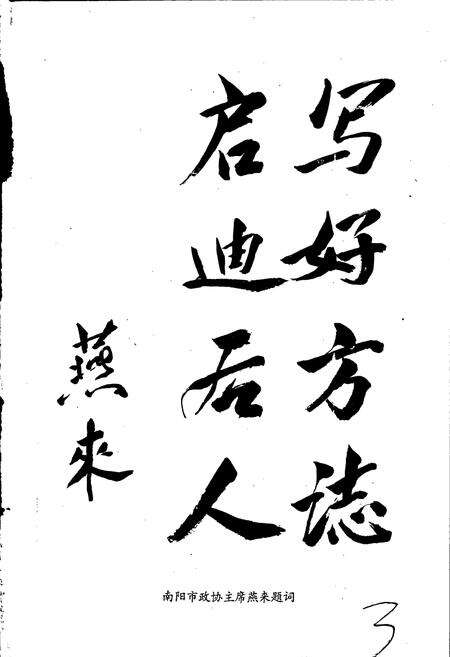 写好方誌
启迪后人
燕來
南阳市政协主席燕来题词
3